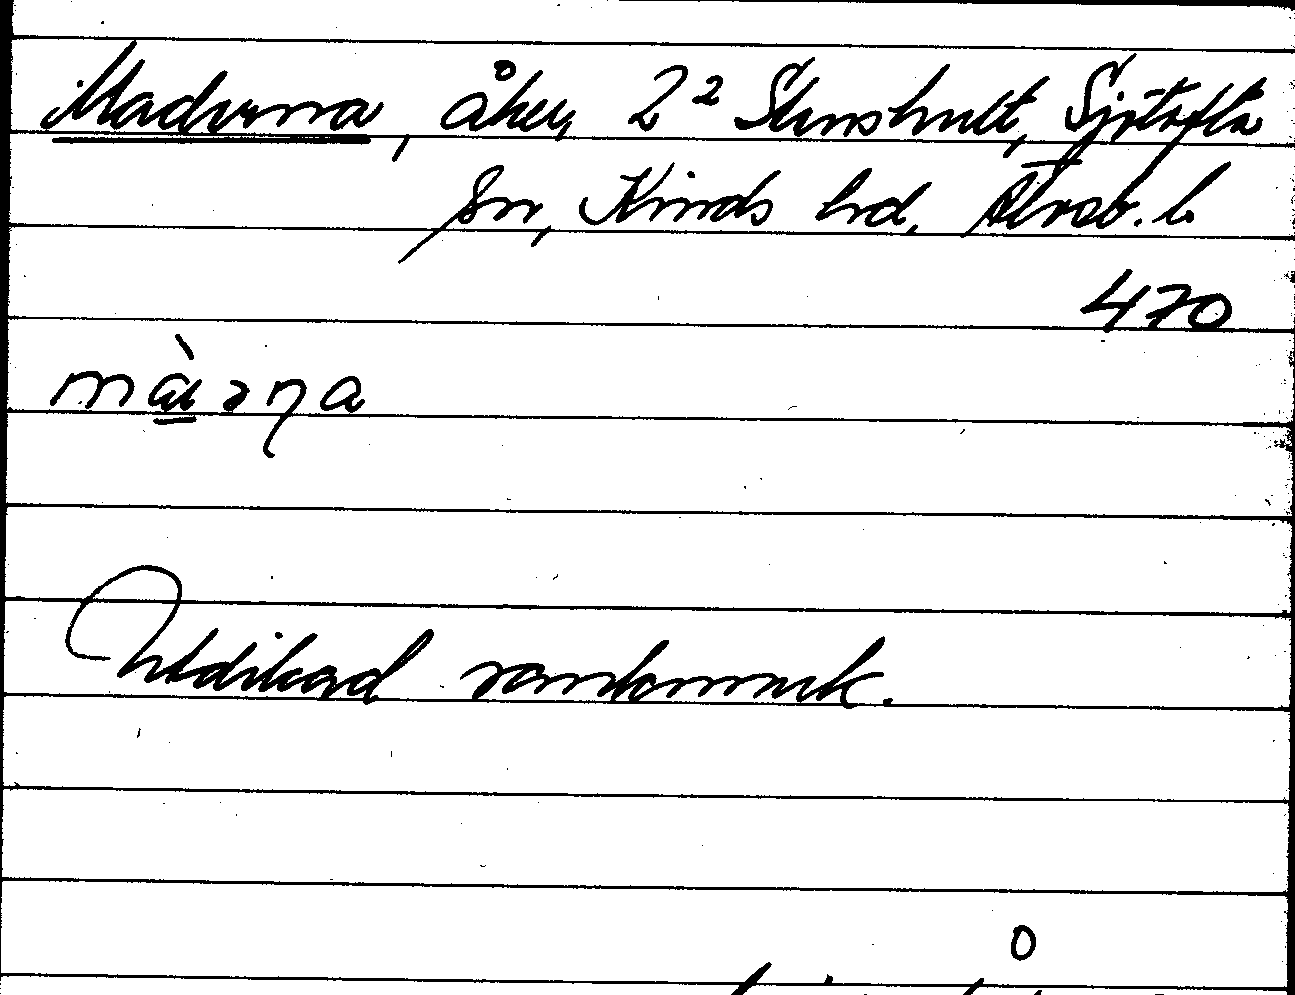 Maderna, åker, 2² Stenshult, Sjötofta
sn, Kinds hd, Älvsb. l.
470
Utdikad vattenmark.
0